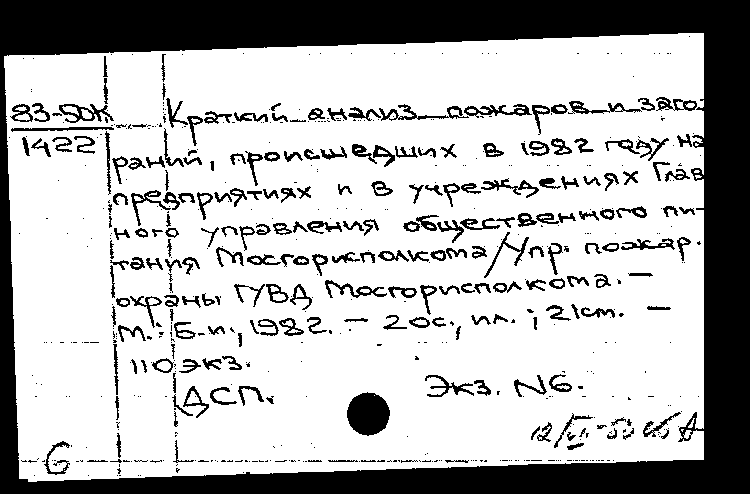 83-50К Краткий анализ пожаров и заго-
1422
раний, происшедших в 1982 году на
предприятиях и в учреждениях Глав
ного управления общественного пи-
тания Мосгорисполкома/Упр. пожар.
охраны ГУВД Мосгорисполкома. –
М.: Б.и., 1982. – 20с., ил.; 21см. –
110 экз.
ДСП. Экз. №6.
12/VI-83
6